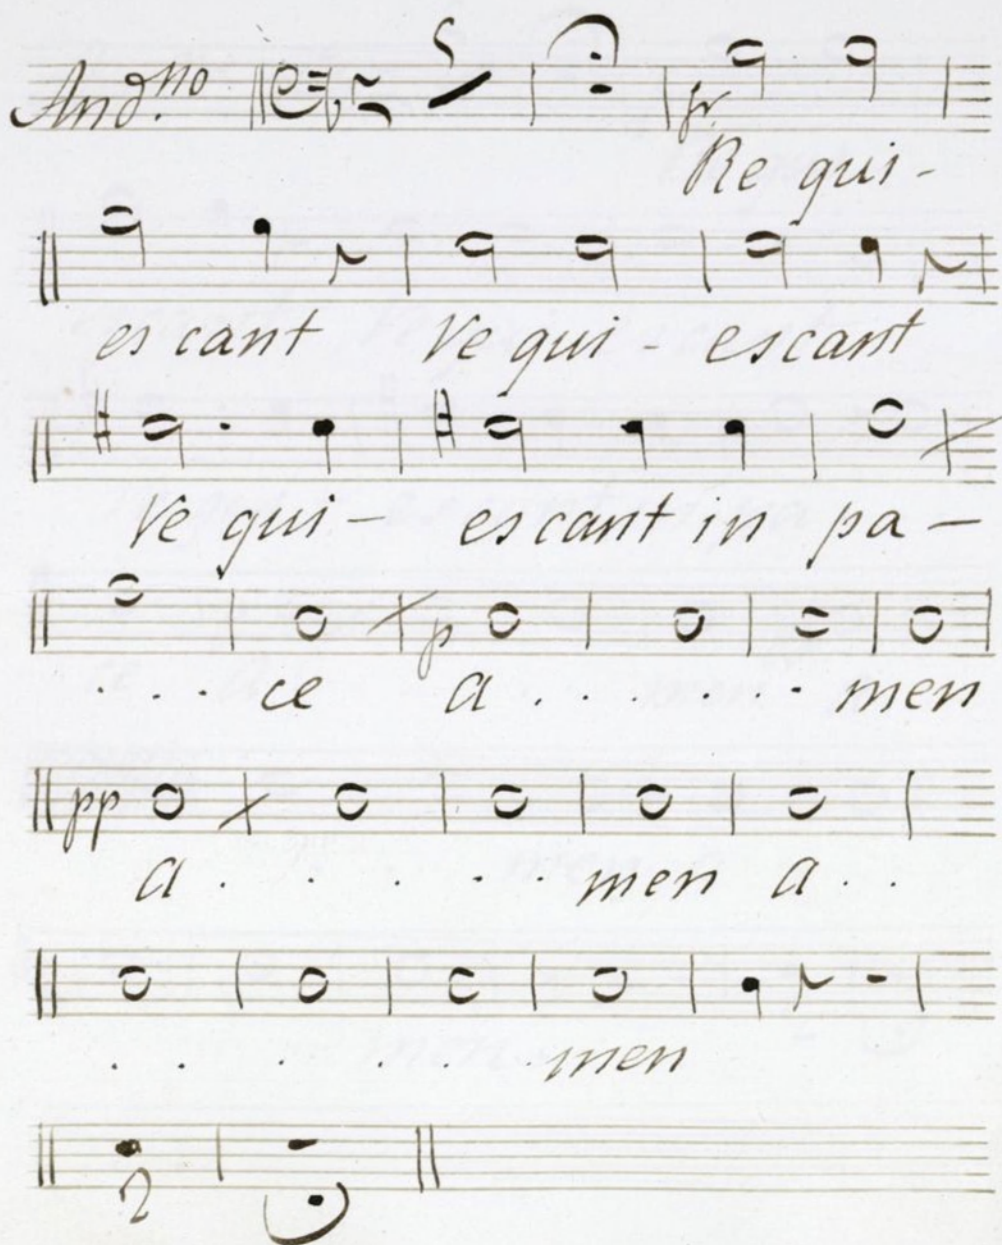 And.no 5
fr
Re qui-
es cant Re qui - es cant
Re qui - es cant in pa -
p
. . . ce a . . . . . . men
pp
a . . . . . men a . .
. . . . . . men
2